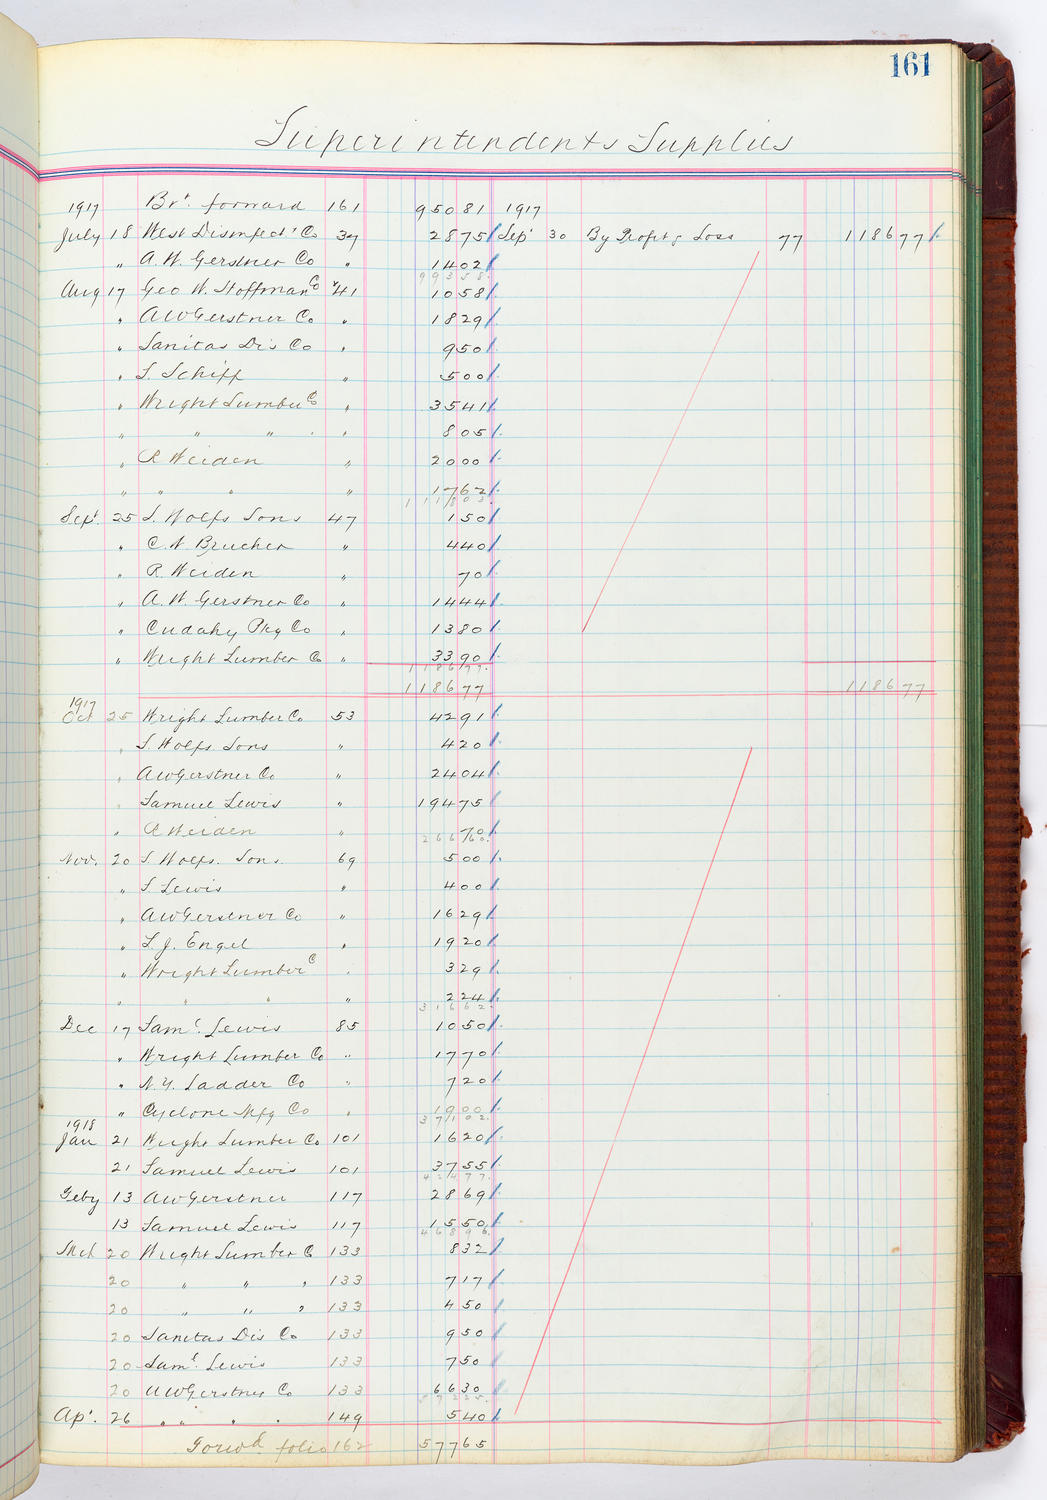 161
Superintendents Supplies
1917 Brt. forward 161 95081 1917
July 18 West Disinfect' Co 37 2875 Sep' 30 By Profit & Loss 77 118677
" A. W. Gerstner Co " 1402
99358
Aug 17 Geo W. Hoffman Co 41 1058
" A W Gerstner Co " 1829
" Sanitas Dis Co " 950
" S. Schiff " 500
" Wright Lumber Co " 3541
" " " " " 805
" R Weiden " 2000
" " " " 1762
111803
Sept. 25 S. Wolfs Sons 47 150
" C. N. Brucher " 440
" R. Weiden " 70
" A. W. Gerstner Co " 1444
" Cudahy Pkg Co " 1380
" Wright Lumber Co " 3390
118677
118677 118677
1917
Oct 25 Wright Lumber Co 53 4291
" S. Wolfs Sons " 420
" A W Gerstner Co " 2404
" Samuel Lewis " 19475
" R Weiden " 70
26660
Nov. 20 S. Wolfs. Sons. 69 500
" S. Lewis " 400
" A W Gerstner Co " 1629
" L. J. Engel " 1920
" Wright Lumber C " 329
" " " " 224
31662
Dec 17 Saml. Lewis 85 1050
" Wright Lumber Co " 1770
" N. Y. Ladder Co " 720
" Cyclone Mfg Co " 1900
37102
1918
Jan 21 Wright Lumber Co 101 1620
21 Samuel Lewis 101 3755
42477
Feby 13 A W Gerstner 117 2869
13 Samuel Lewis 117 1550
46896
Mch 20 Wright Lumber Co 133 832
20 " " " 133 717
20 " " " 133 450
20 Sanitas Dis Co 133 950
20 Saml. Lewis 133 750
20 A W Gerstner Co 133 6630
57225
Ap'. 26 " " " " 149 540
Forwd folio 162 57765